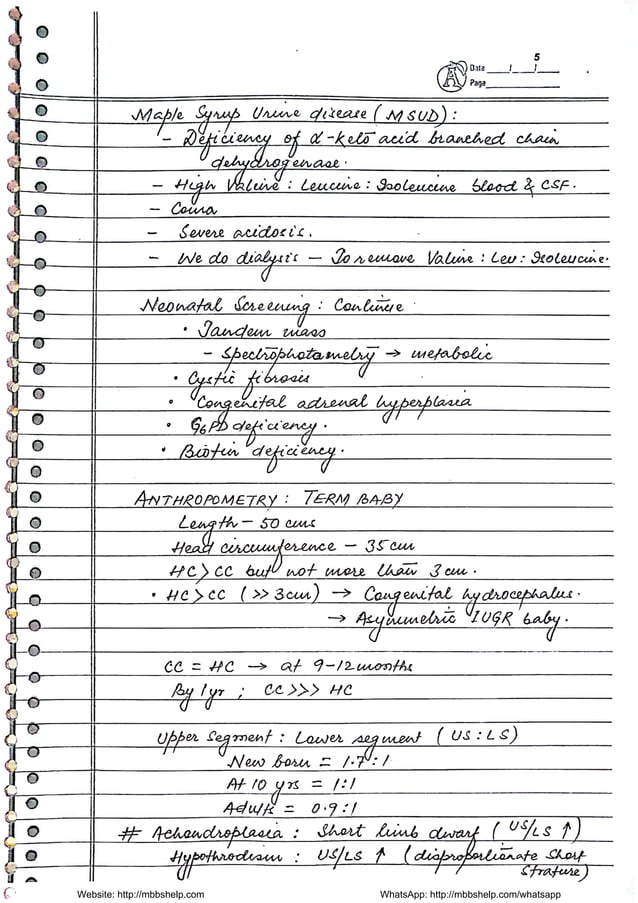 5
Date / /
Page
Maple Syrup Urine disease (MSUD):
- Deficiency of α-keto acid branched chain
dehydrogenase.
- High Valine : Leucine : Isoleucine blood & CSF.
- Coma
- Severe acidosis.
- We do dialysis - To remove Valine : Leu : Isoleucine.
Neonatal Screening : Continue
• Tandem mass
- Spectrophotametry → metabolic
• Cystic fibrosis
• Congenital adrenal hyperplasia
• G6PD deficiency.
• Biotin deficiency.
ANTHROPOMETRY : TERM BABY
Length - 50 cms
Head circumference - 35 cm
HC > CC but not more than 3 cm.
• HC > CC (>> 3cm) → Congenital hydrocephalus.
→ Asymmetric IUGR baby.
CC = HC → at 9-12 months
By 1 yr ; CC >>> HC
Upper Segment : Lower segment (US : LS)
New born = 1.7 : 1
At 10 yrs = 1:1
Adults = 0.9 : 1
# Achondroplasia : Short limb dwarf (US/LS ↑)
Hypothrodism : US/LS ↑ (disproportionate Short
Strature)
Website: http://mbbshelp.com WhatsApp: http://mbbshelp.com/whatsapp